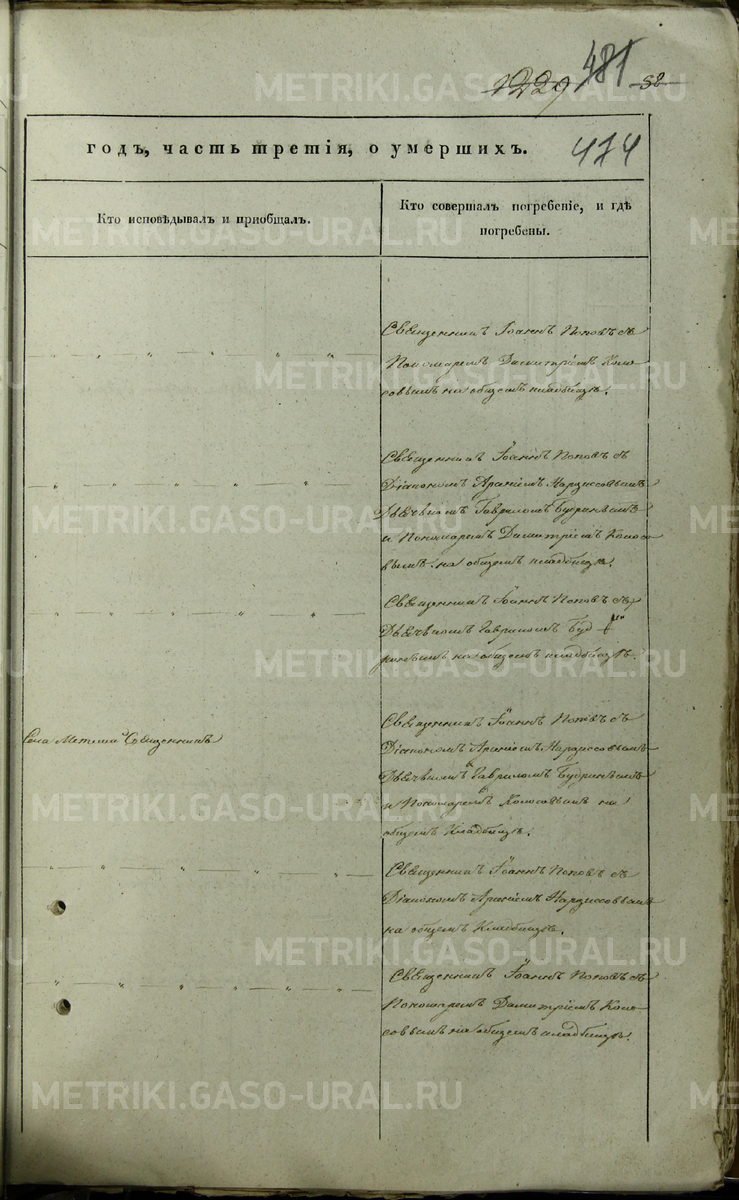 1229 481 52
474
годъ, часть третія, о умершихъ.
Кто исповѣдывалъ и пріобщалъ.
Кто совершалъ погребеніе, и гдѣ
погребены.
Священникъ Іоаннъ Поповъ съ
Пономаремъ Димитріемъ Коло-
совымъ на общемъ кладбищѣ.
Священникъ Іоаннъ Поповъ съ
Діакономъ Нарциссовымъ
Дьячькомъ Гавриломъ
и Пономаремъ Димитріемъ Колосо
вымъ на общемъ кладбищѣ.
Священникъ Іоаннъ Поповъ съ
Дьячькомъ Гавриломъ
на общемъ кладбищѣ.
Села Священникъ
Священникъ Іоаннъ Поповъ съ
Діакономъ Нарциссовымъ
Дьячькомъ Гавриломъ
и Пономаремъ Колосовымъ на
общемъ Кладбищѣ.
Священникъ Іоаннъ Поповъ съ
Діакономъ Нарциссовымъ
на общемъ Кладбищѣ.
Священникъ Іоаннъ Поповъ съ
Пономаремъ Димитріемъ Коло-
совымъ на общемъ кладбищѣ.
METRIKI.GASO-URAL.RU